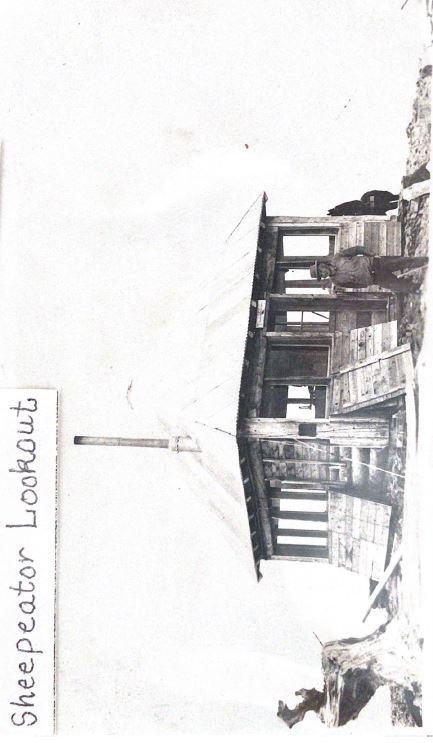 Sheepeator Lookout